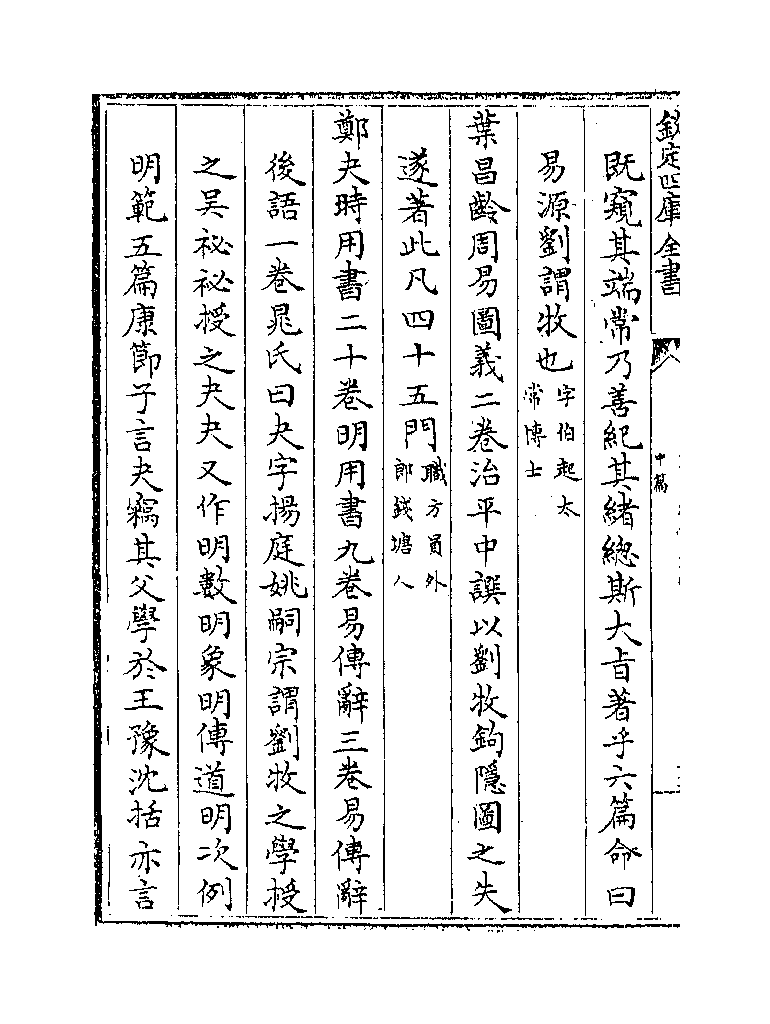 欽定四庫全書
中篇
既窺其端常乃善紀其緒緫斯大㫖著乎六篇命曰
易源劉謂牧也字伯起太常博士
葉昌齡周易圖義二卷治平中譔以劉牧鉤隱圖之失
遂著此凡四十五門職方員外郎錢塘人
鄭夬時用書二十卷明用書九卷易傳辭三卷易傳辭
後語一卷晁氏曰夬字揚庭姚嗣宗謂劉牧之學授
之吳祕祕授之夬夬又作明數明象明傳道明次例
明範五篇康節子言夬竊其父學於王豫沈括亦言